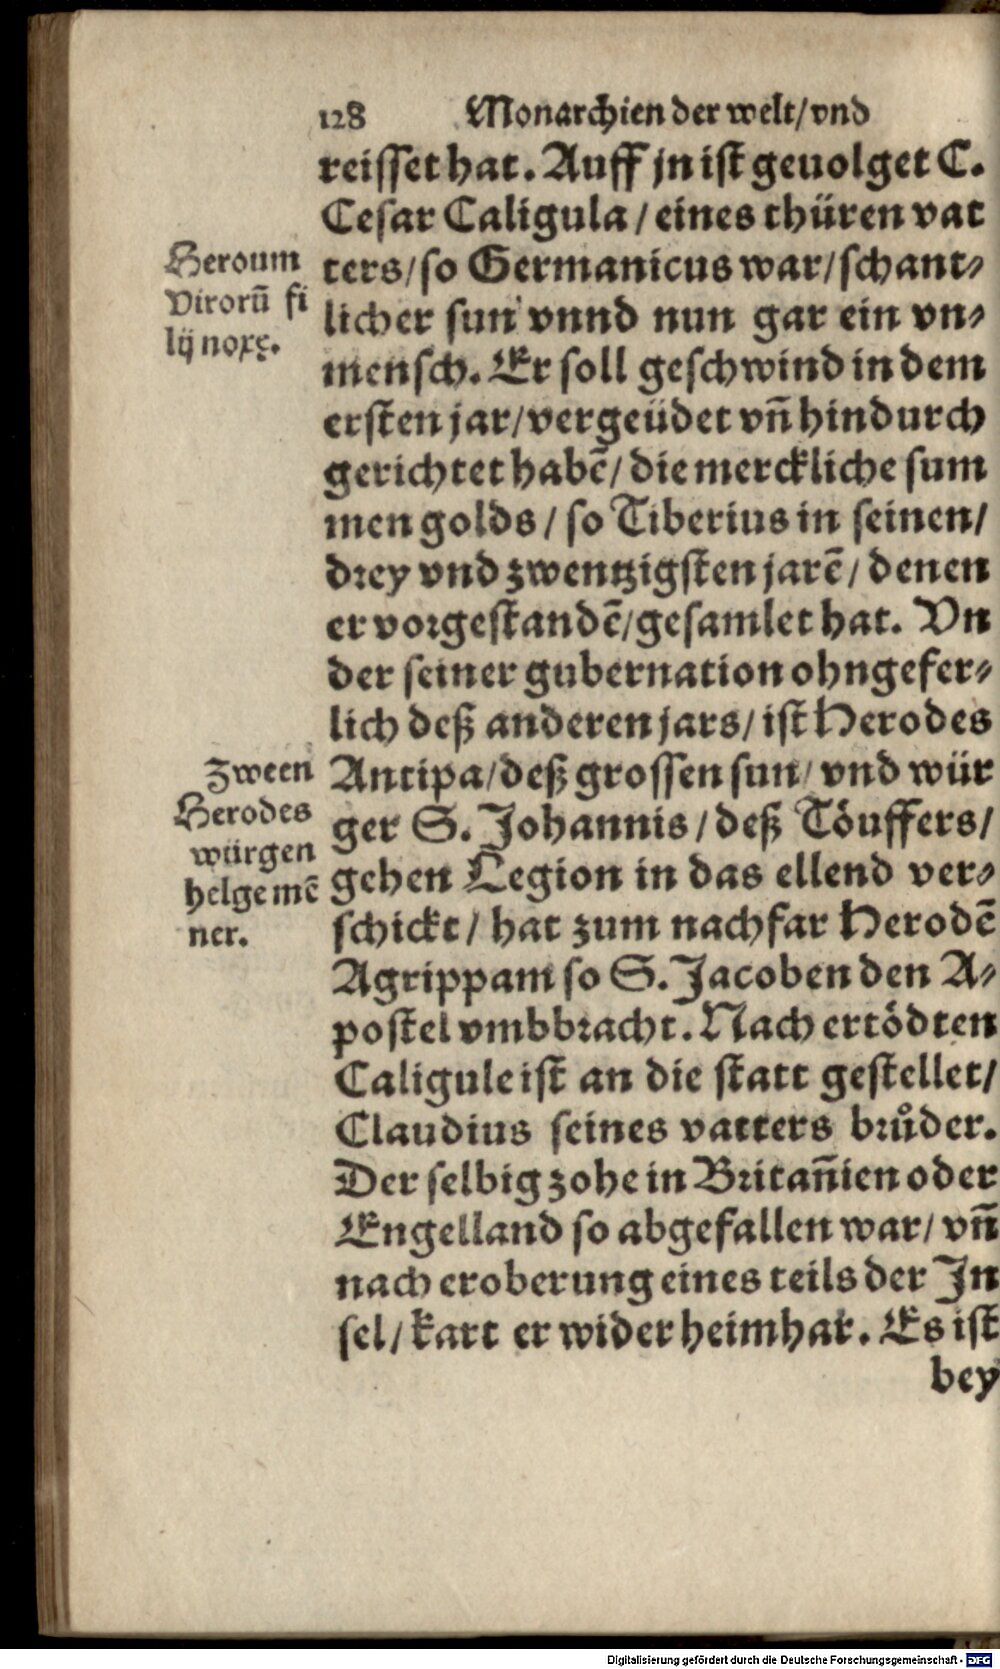 128 Monarchien der welt/vnd
reisset hat. Auff jn ist geuolget C.
Cesar Caligula/eines thüren vat
ters/so Germanicus war/schant⸗
licher sun vnnd nun gar ein vn⸗
mensch. Er soll geschwind in dem
ersten jar/vergeüdet vñ hindurch
gerichtet habē/die merckliche sum
men golds/so Tiberius in seinen/
drey vnd zwentzigsten jarē/denen
er vorgestandē/gesamlet hat. Vn
der seiner gubernation ohngefer⸗
lich deß anderen jars/ist Herodes
Antipa/deß grossen sun/vnd wür
ger S. Johannis/deß Töuffers/
gehen Legion in das ellend ver⸗
schickt/hat zum nachfar Herodē
Agrippam so S. Jacoben den A⸗
postel vmbbracht. Nach ertödten
Caligule ist an die statt gestellet/
Claudius seines vatters brůder.
Der selbig zohe in Britañien oder
Engelland so abgefallen war/vñ
nach eroberung eines teils der In
sel/kart er wider heimhar. Es ist
bey
Heroum
virorū fi
lij noxę.
Zween
Herodes
würgen
helge mē
ner.
Digitalisierung gefördert durch die Deutsche Forschungsgemeinschaft - DFG